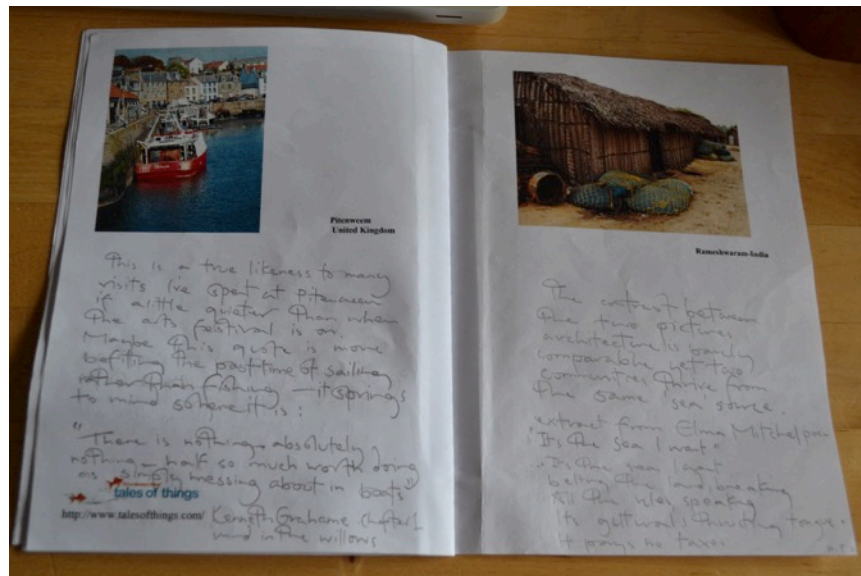 Pitenweem
United Kingdom
This is a true likeness to many
visits I've spent at Pitenweem
if a little quieter than when
the arts festival is on.
Maybe this quote is more
befiting the pasttime of sailing
rather than fishing – it springs
to mind so here it is :
"There is nothing – absolutely
nothing – half so much worth doing
as simply messing about in boats"
tales of things
http://www.talesofthings.com/
Kenneth Grahame Chapter 1
wind in the willows
Rameshwaram-India
The contrast between
the two pictures
architecture is barely
comparable yet two
communities thrive from
the same 'sea' source.
extract from Elma Mitchel poem
"It's the sea I want"
"It's the sea I want
belting the land, breaking
All the rules speaking
Its guttural thrusting tongue.
It pays no taxes